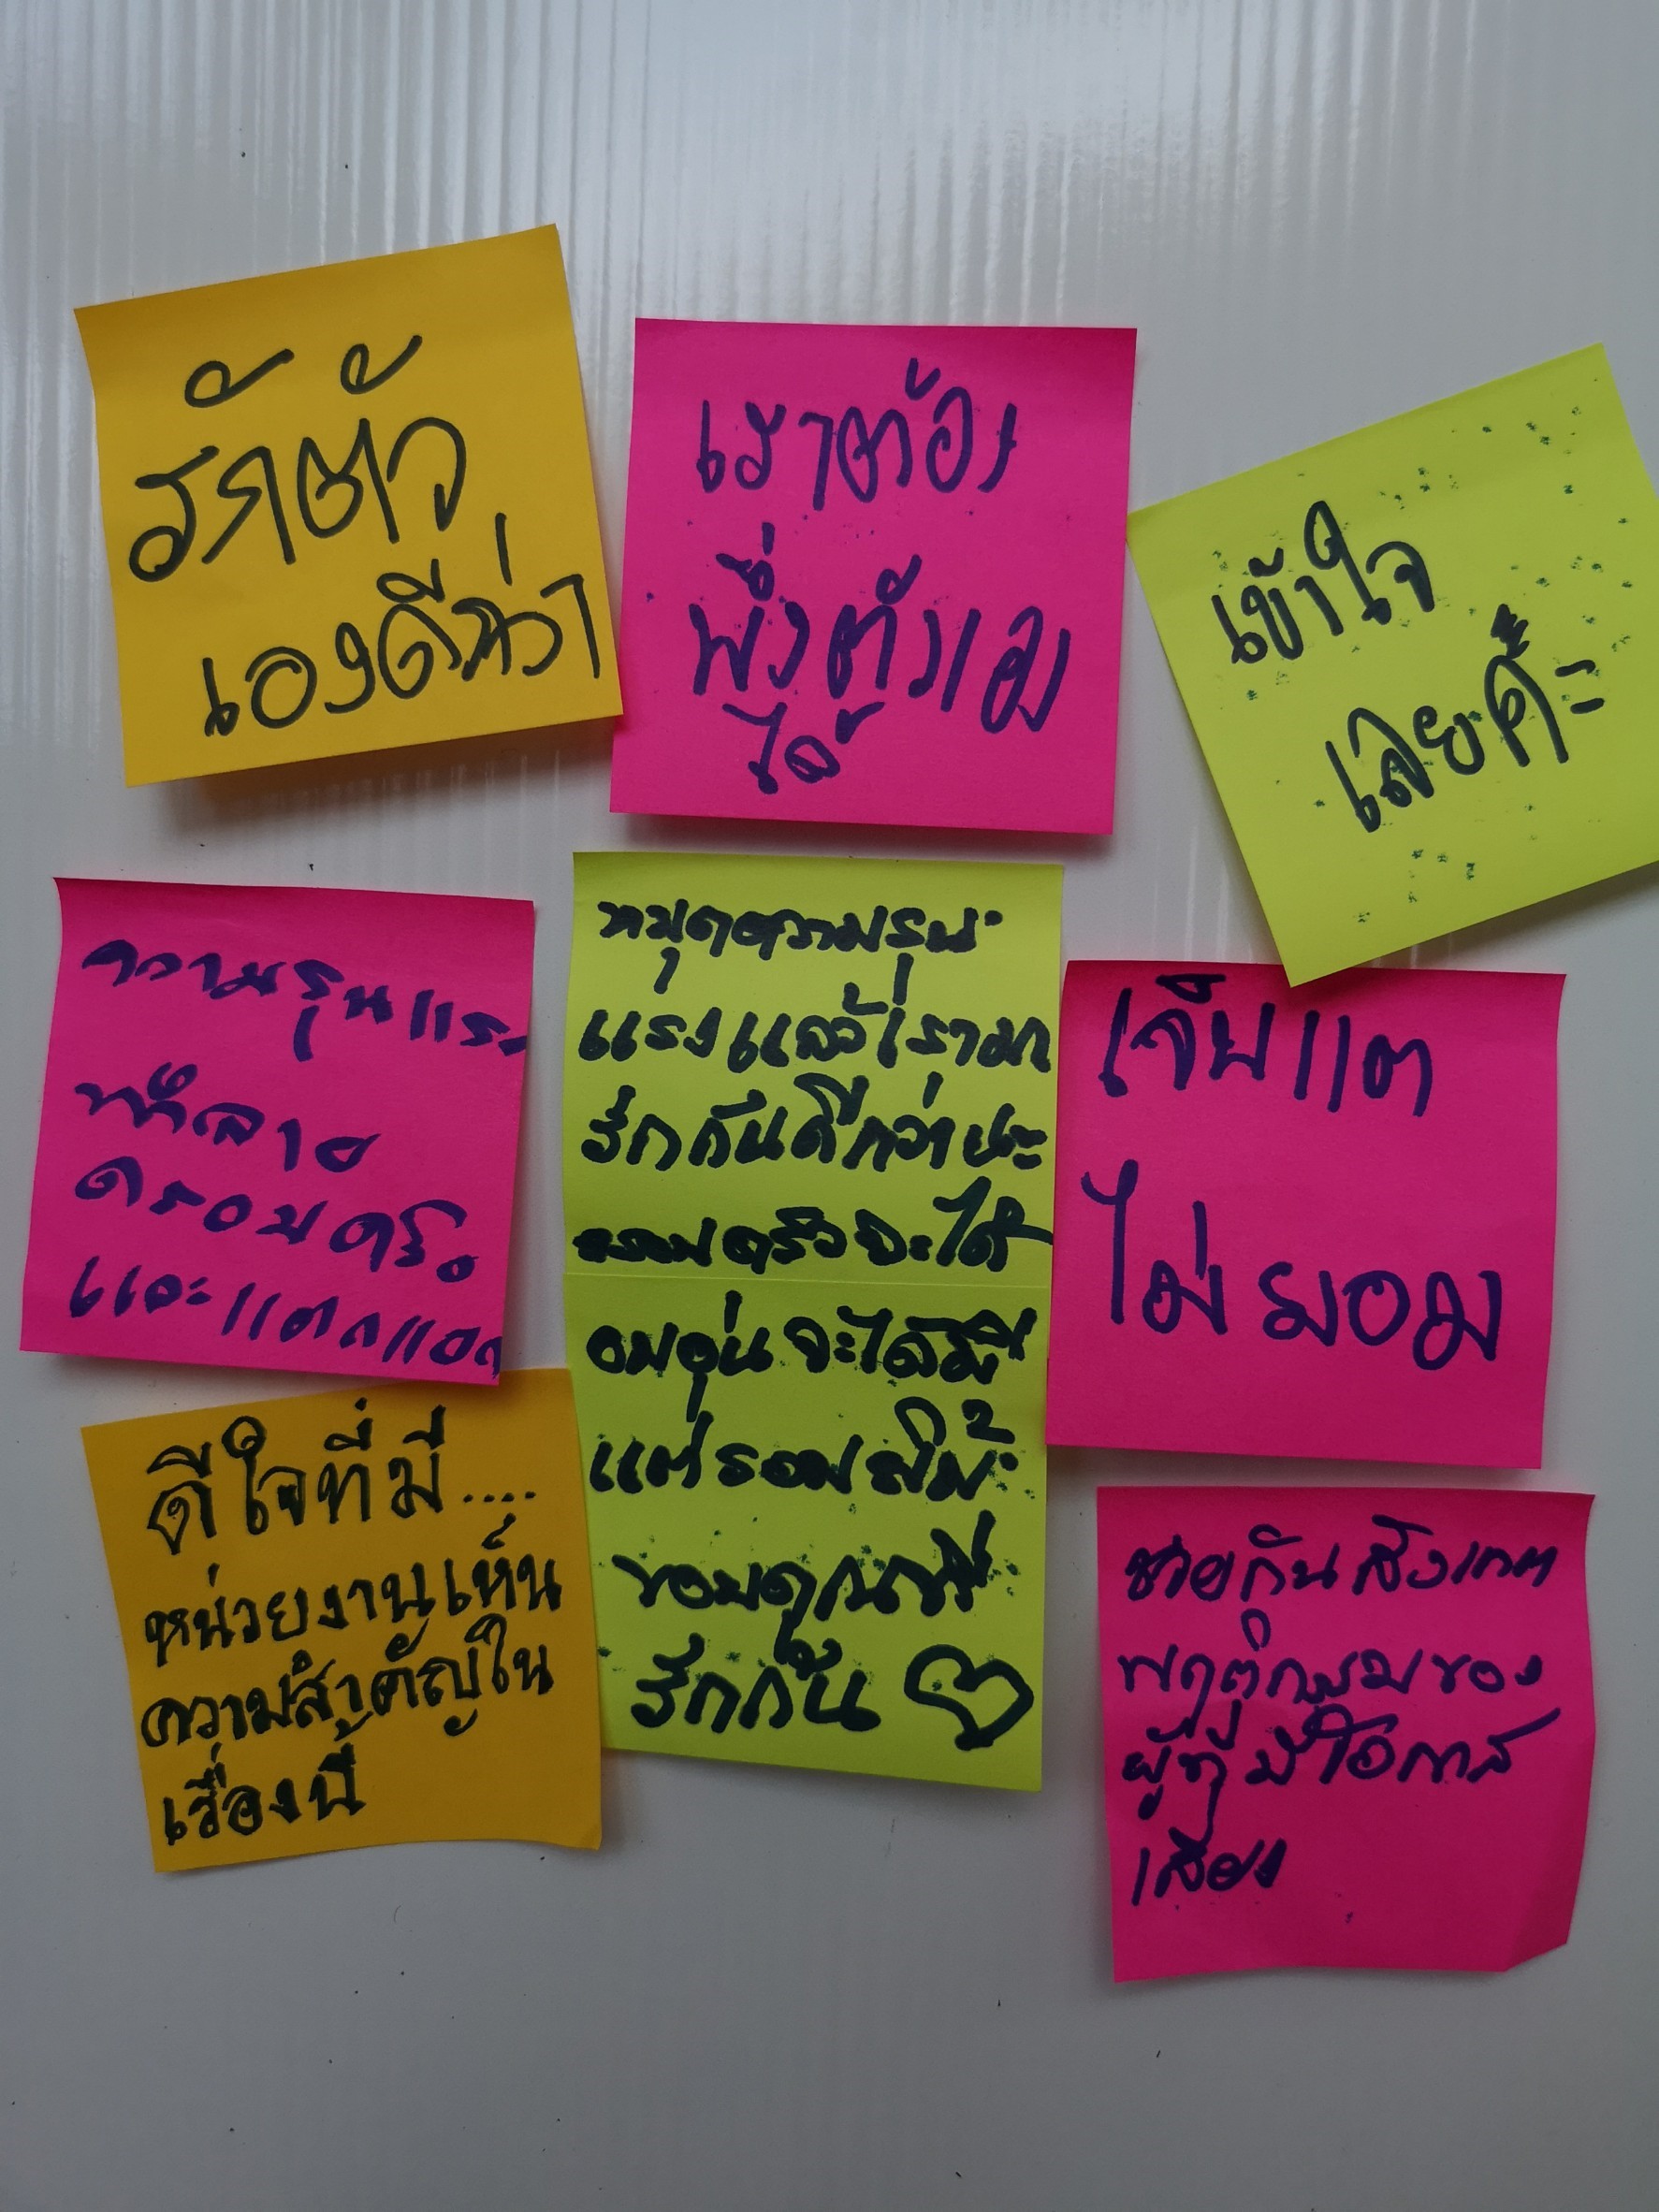 รักตัว
เองดีกว่า
เราต้อง
พึ่งตัวเอง
ได้
เข้าใจ
เลยค๊ะ
ความรุนแรง
ทำลาย
ครอบครัว
และแตกแยก
หยุดความรุน
แรงแล้วเรามา
รักกันดีกว่านะ
ครอบครัวจะได้
อบอุ่น จะได้มี
แต่รอยยิ้ม
ขอบคุณที่
รักกัน
เจ็บแต่
ไม่ยอม
ดีใจที่มี....
หน่วยงานเห็น
ความสำคัญใน
เรื่องนี้
ช่วยกันสังเกต
พฤติกรรมของ
ผู้ที่มีโอกาส
เสี่ยง